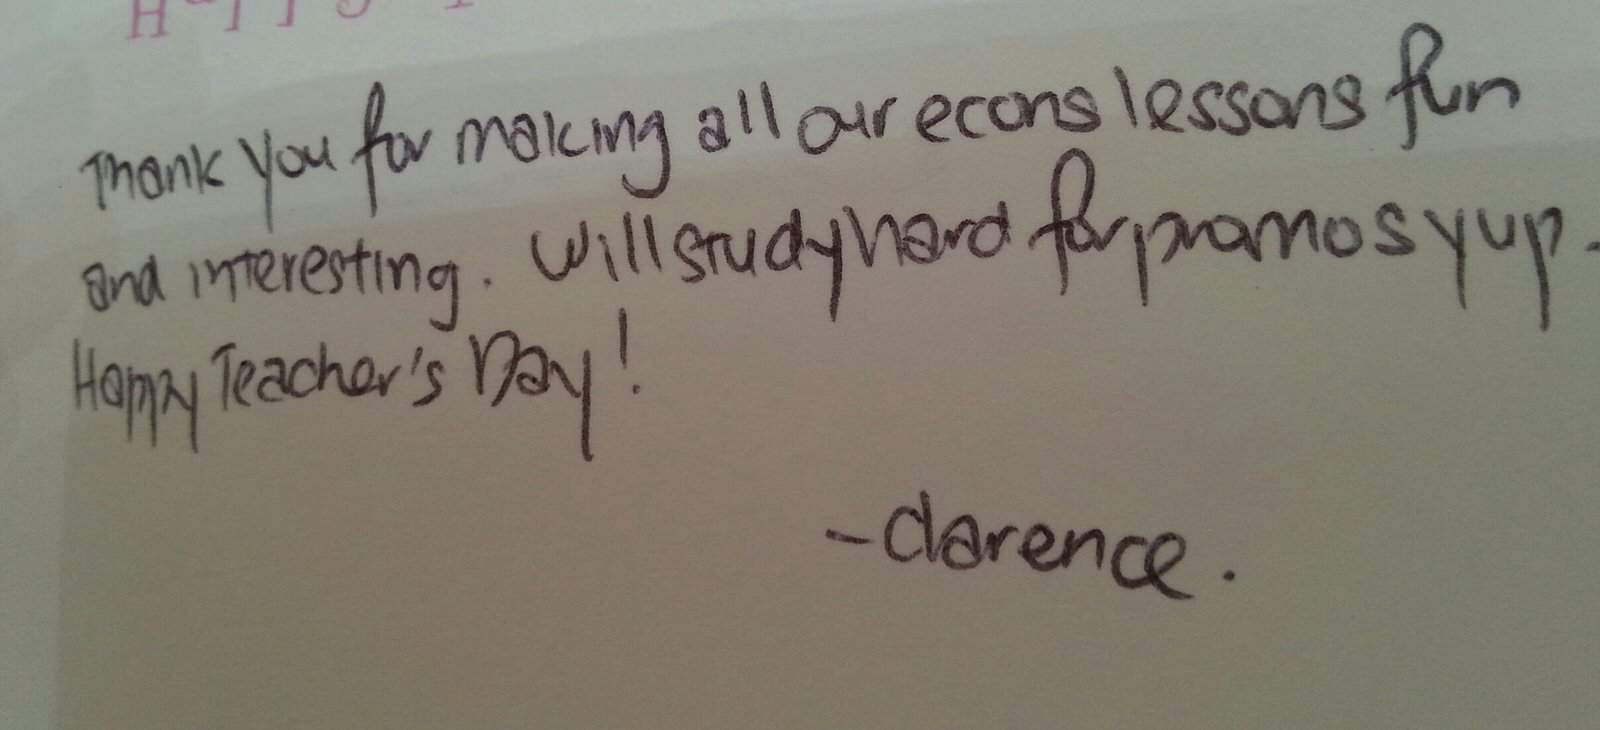 Thank you for making all our econs lessons fun
and interesting. Will study hard for promos yup.
Happy Teacher's Day!
-Clarence.